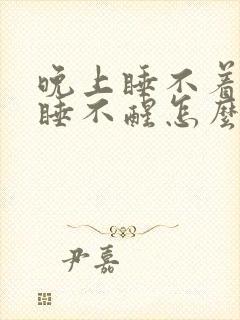 晚上睡不着
睡不醒怎麼
尹嘉